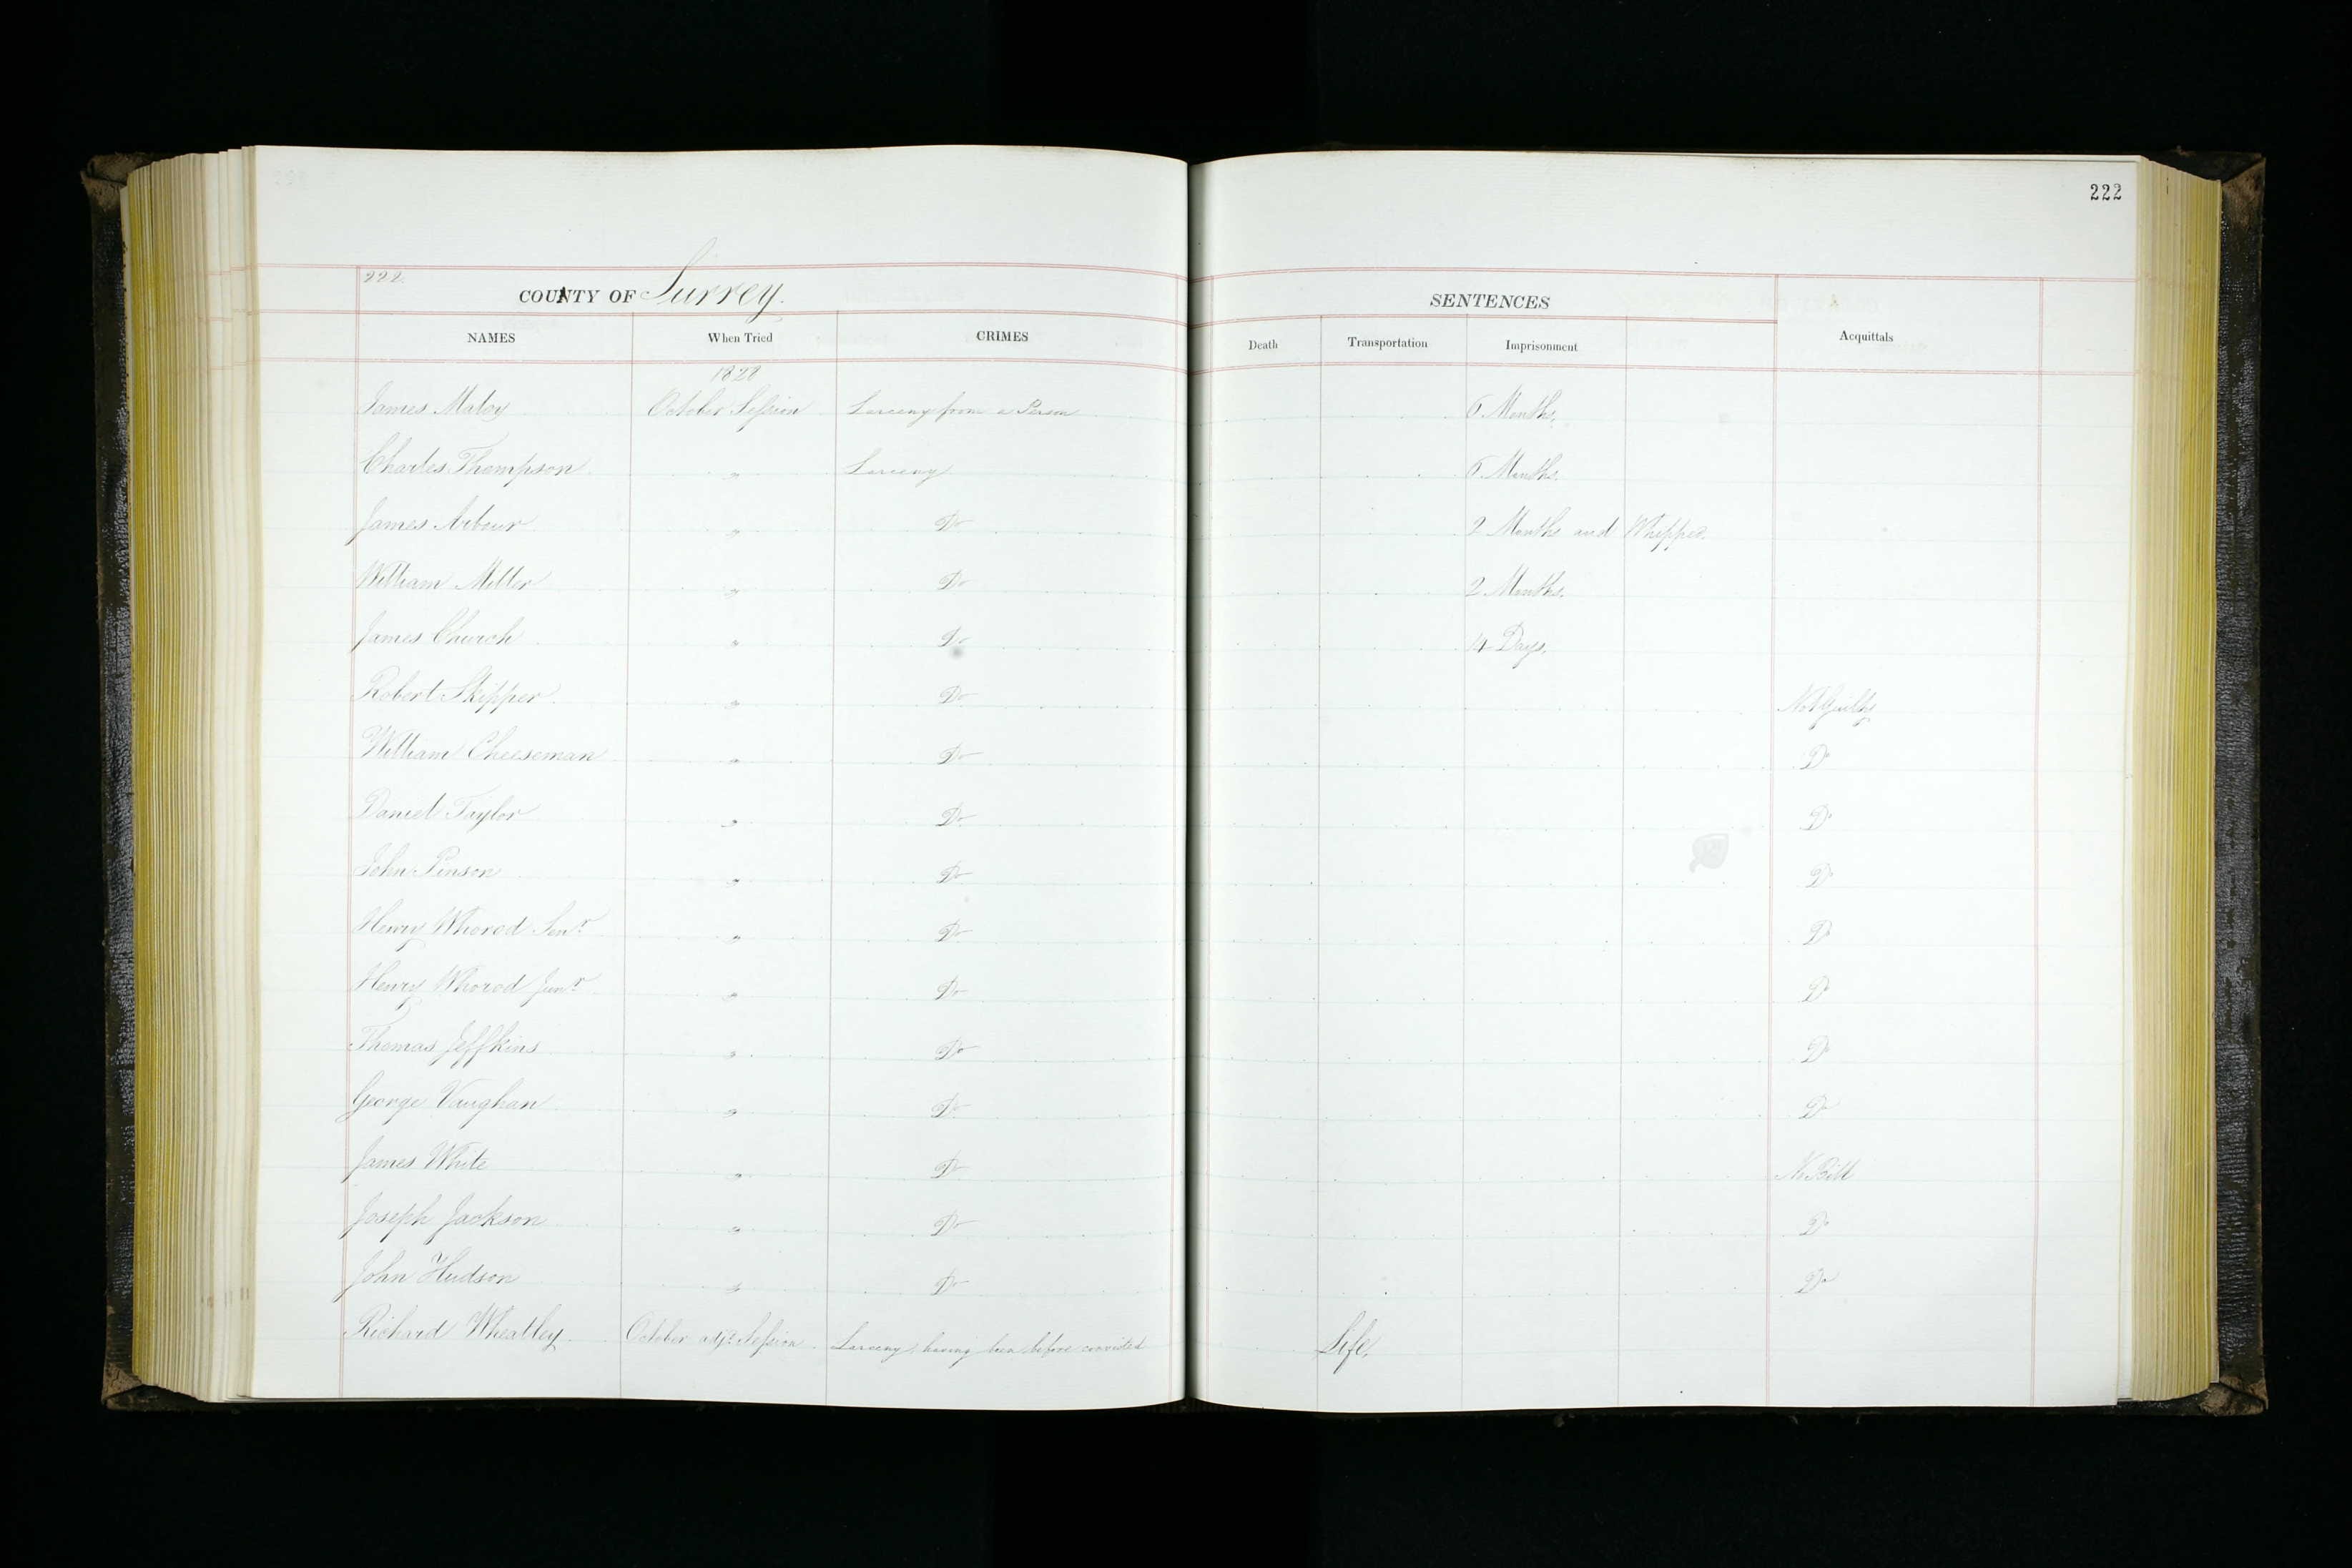 222
222.
COUNTY OF Surrey.
SENTENCES
NAMES When Tried CRIMES Death Transportation Imprisonment Acquittals
1828
James Maloy October Session Larceny from a Person 6 Months.
Charles Thompson " Larceny 6 Months.
James Arbour " Do 2 Months and Whipped.
William Miller " Do 2 Months.
James Church " Do 14 Days.
Robert Skipper " Do Not Guilty
William Cheeseman " Do Do
Daniel Taylor " Do Do
John Pinson " Do Do
Henry Whorod Senr " Do Do
Henry Whorod Junr " Do Do
Thomas Jeffkins " Do Do
George Vaughan " Do Do
James White " Do No Bill
Joseph Jackson " Do Do
John Hudson " Do Do
Richard Wheatley October adjd Session Larceny, having been before convicted Life.